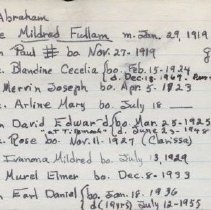 Abraham
e Mildred Fullam m. Jan. 29, 1919
n Paul # bo Nov. 27-1919 g
c. Blandine Cecelia bo. Feb. 15-1924
d. Dec. 18. 1969-
. Merrin Joseph bo. Apr. 5-1923
c. Arline Mary bo. July 18
n David Edward bo. Mar. 25-1925
d. June 23-19
c. Rose bo. Nov. 11-1927 (Clarissa)
Ivanona Mildred bo. July 13, 1929
Murel Elmer bo. Dec. 8-1933
n Earl Daniel bo. Jan. 18. 1936
d (19yrs) July 12-1955